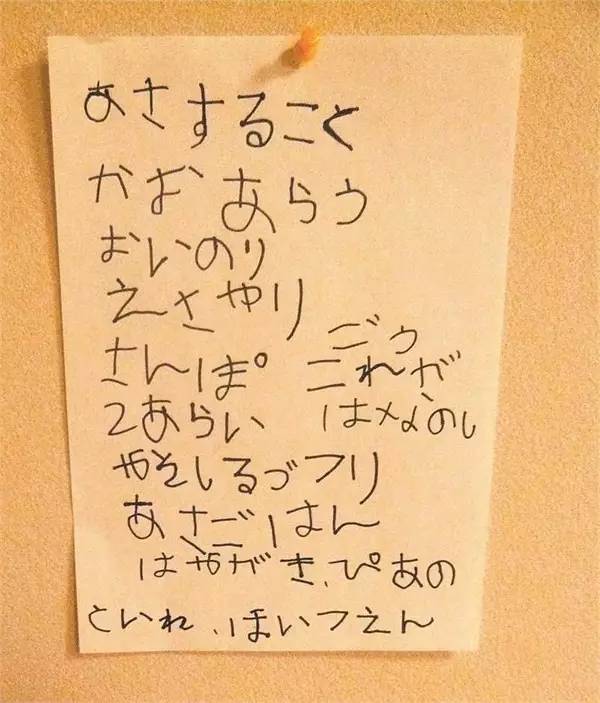 あさすること
かおあらう
おいのり
えさやり
さんぽ
てあらい
ごう
これが
はなのし
みそしるづくり
あさごはん
はみがき、ぴあの
といれ、ほいつえん